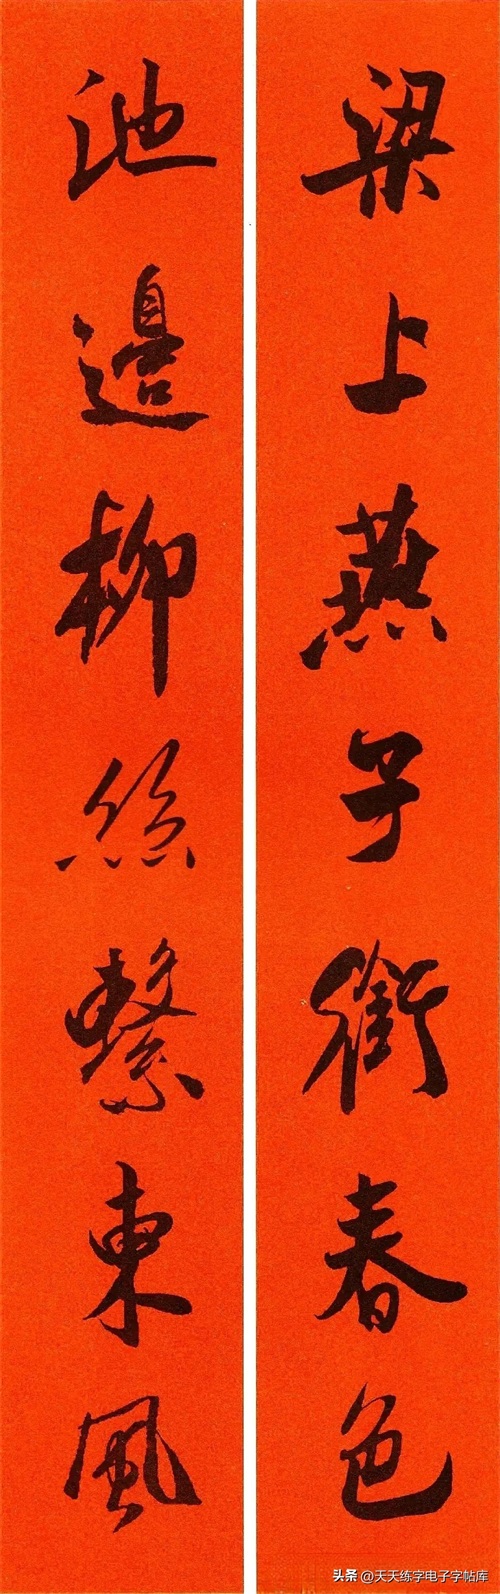 梁上燕子銜春色
池邊柳絲繫東風
头条 @天天练字电子字帖库